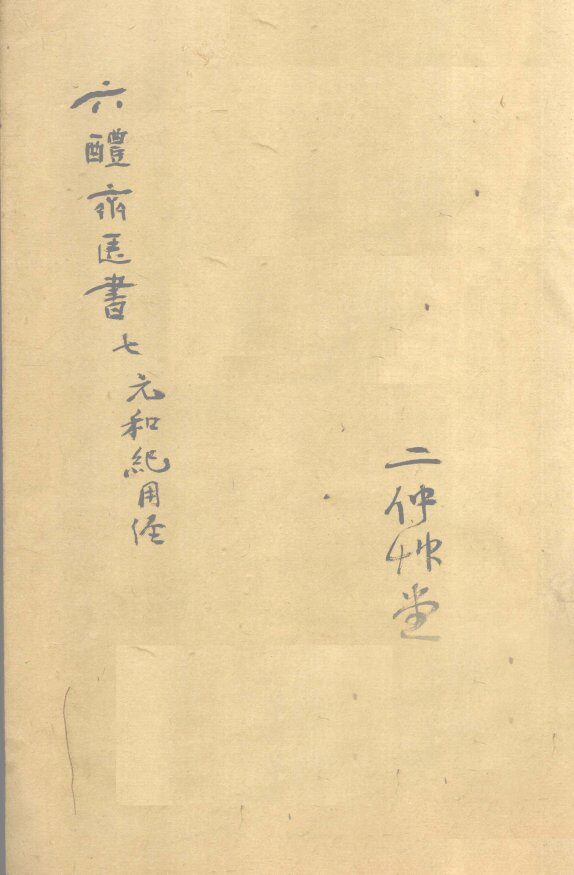 二仲艸堂
六醴斎医書七 元和紀用経